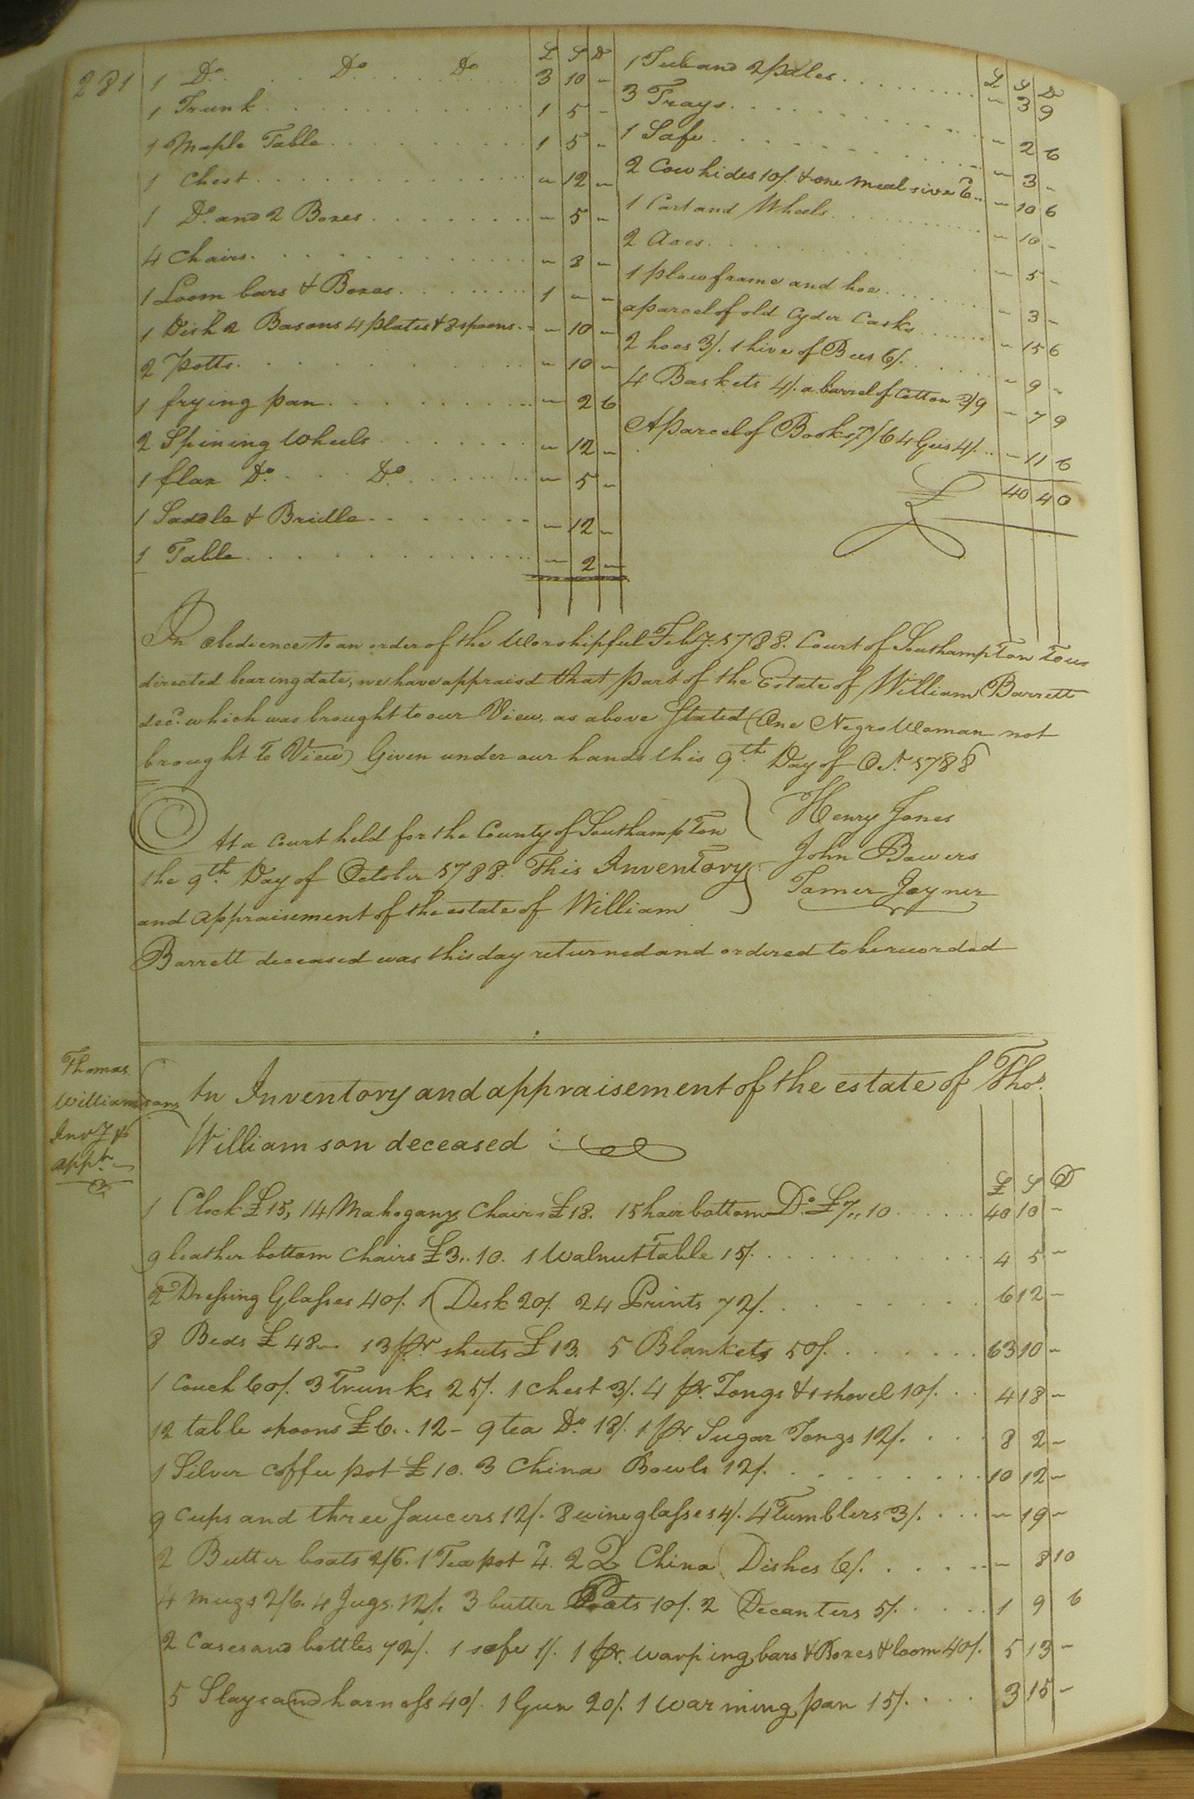 281
£ S D
1 Do. Do Do 3 10 -
1 Trunk 1 5 -
1 Maple Table 1 5 -
1 Chest - 12 -
1 Do. and 2 Boxes - 5 -
4 Chairs - 8 -
1 Loom bars & Boxes 1 - -
1 Dish 2 Basons 4 plates & 8 spoons - 10 -
2 Potts - 10 -
1 frying pan - 2 6
2 Spining Wheels - 12 -
1 flax Do. Do - 5 -
1 Saddle & Bridle - 12 -
1 Table - 2 -
£ S D
1 Tub and 2 pales - 3 9
3 Trays - 2 6
1 Safe - 3 -
2 Cowhides 10/. & one meal sive 6 - 10 6
1 Cart and Wheels - 10 -
2 Axes - 5 -
1 plow frame and hoe - 3 -
a parcel of old Cyder Casks - 15 6
2 hoes 3/. 1 hive of Bees 6/. - 9 -
4 Baskets 4/. a barrel of Cotton 3/9 - 7 9
A parcel of Books 7/6 4 Gees 4/. - 11 6
£ 40 4 0
In obedience to an order of the Worshipful Feby. 1788. Court of Southampton to us
directed bearing date, we have appraisd that part of the Estate of William Barrett
decd. which was brought to our View, as above Stated (One Negro Woman not
brought to View) Given under our hands this 9th Day of Oct. 1788
Henry Jones
John Bowers
Tamer Joyner
At a Court held for the County of Southampton
the 9th Day of October 1788. This Inventory
and appraisement of the estate of William
Barrett deceased was this day returned and ordered to be recorded
Thomas
Williamsons
Invy &
appt.
An Inventory and appraisement of the estate of Thos.
Williamson deceased
£ S D
1 Clock £15, 14 Mahogany Chairs £18. 15 hair bottom Do. £7,,10 40 10 -
9 leather bottom Chairs £3..10. 1 Walnut Table 15/. 4 5 -
2 Dressing Glasses 40/. 1 Desk 20/. 24 Prints 72/. 6 12 -
8 Beds £48- 13 pr sheets £13. 5 Blankets 50/. 63 10 -
1 Couch 60/. 3 Trunks 25/. 1 Chest 3/. 4 pr. Tongs & 1 shovel 10/. 4 18 -
12 table spoons £6..12- 9 tea Do 18/. 1 pr Sugar Tongs 12/. 8 2 -
1 Silver Coffee pot £10. 3 China Bowls 12/. 10 12 -
9 Cups and three Saucers 12/. 8 wine glasses 4/. 4 Tumblers 3/. - 19 -
2 Butter boats 2/6. 1 Tea pot 4. 2 China Dishes 6/. - 8 10
4 Mugs 2/6. 4 Jugs. 12/. 3 butter Pots 10/. 2 Decanters 5/. 1 9 6
2 Cases and bottles 72/. 1 safe 1/. 1 pr. warping bars & Boxes & loom 40/. 5 13 -
5 Slays and harness 40/. 1 Gun 20/. 1 Warming pan 15/. 3 15 -